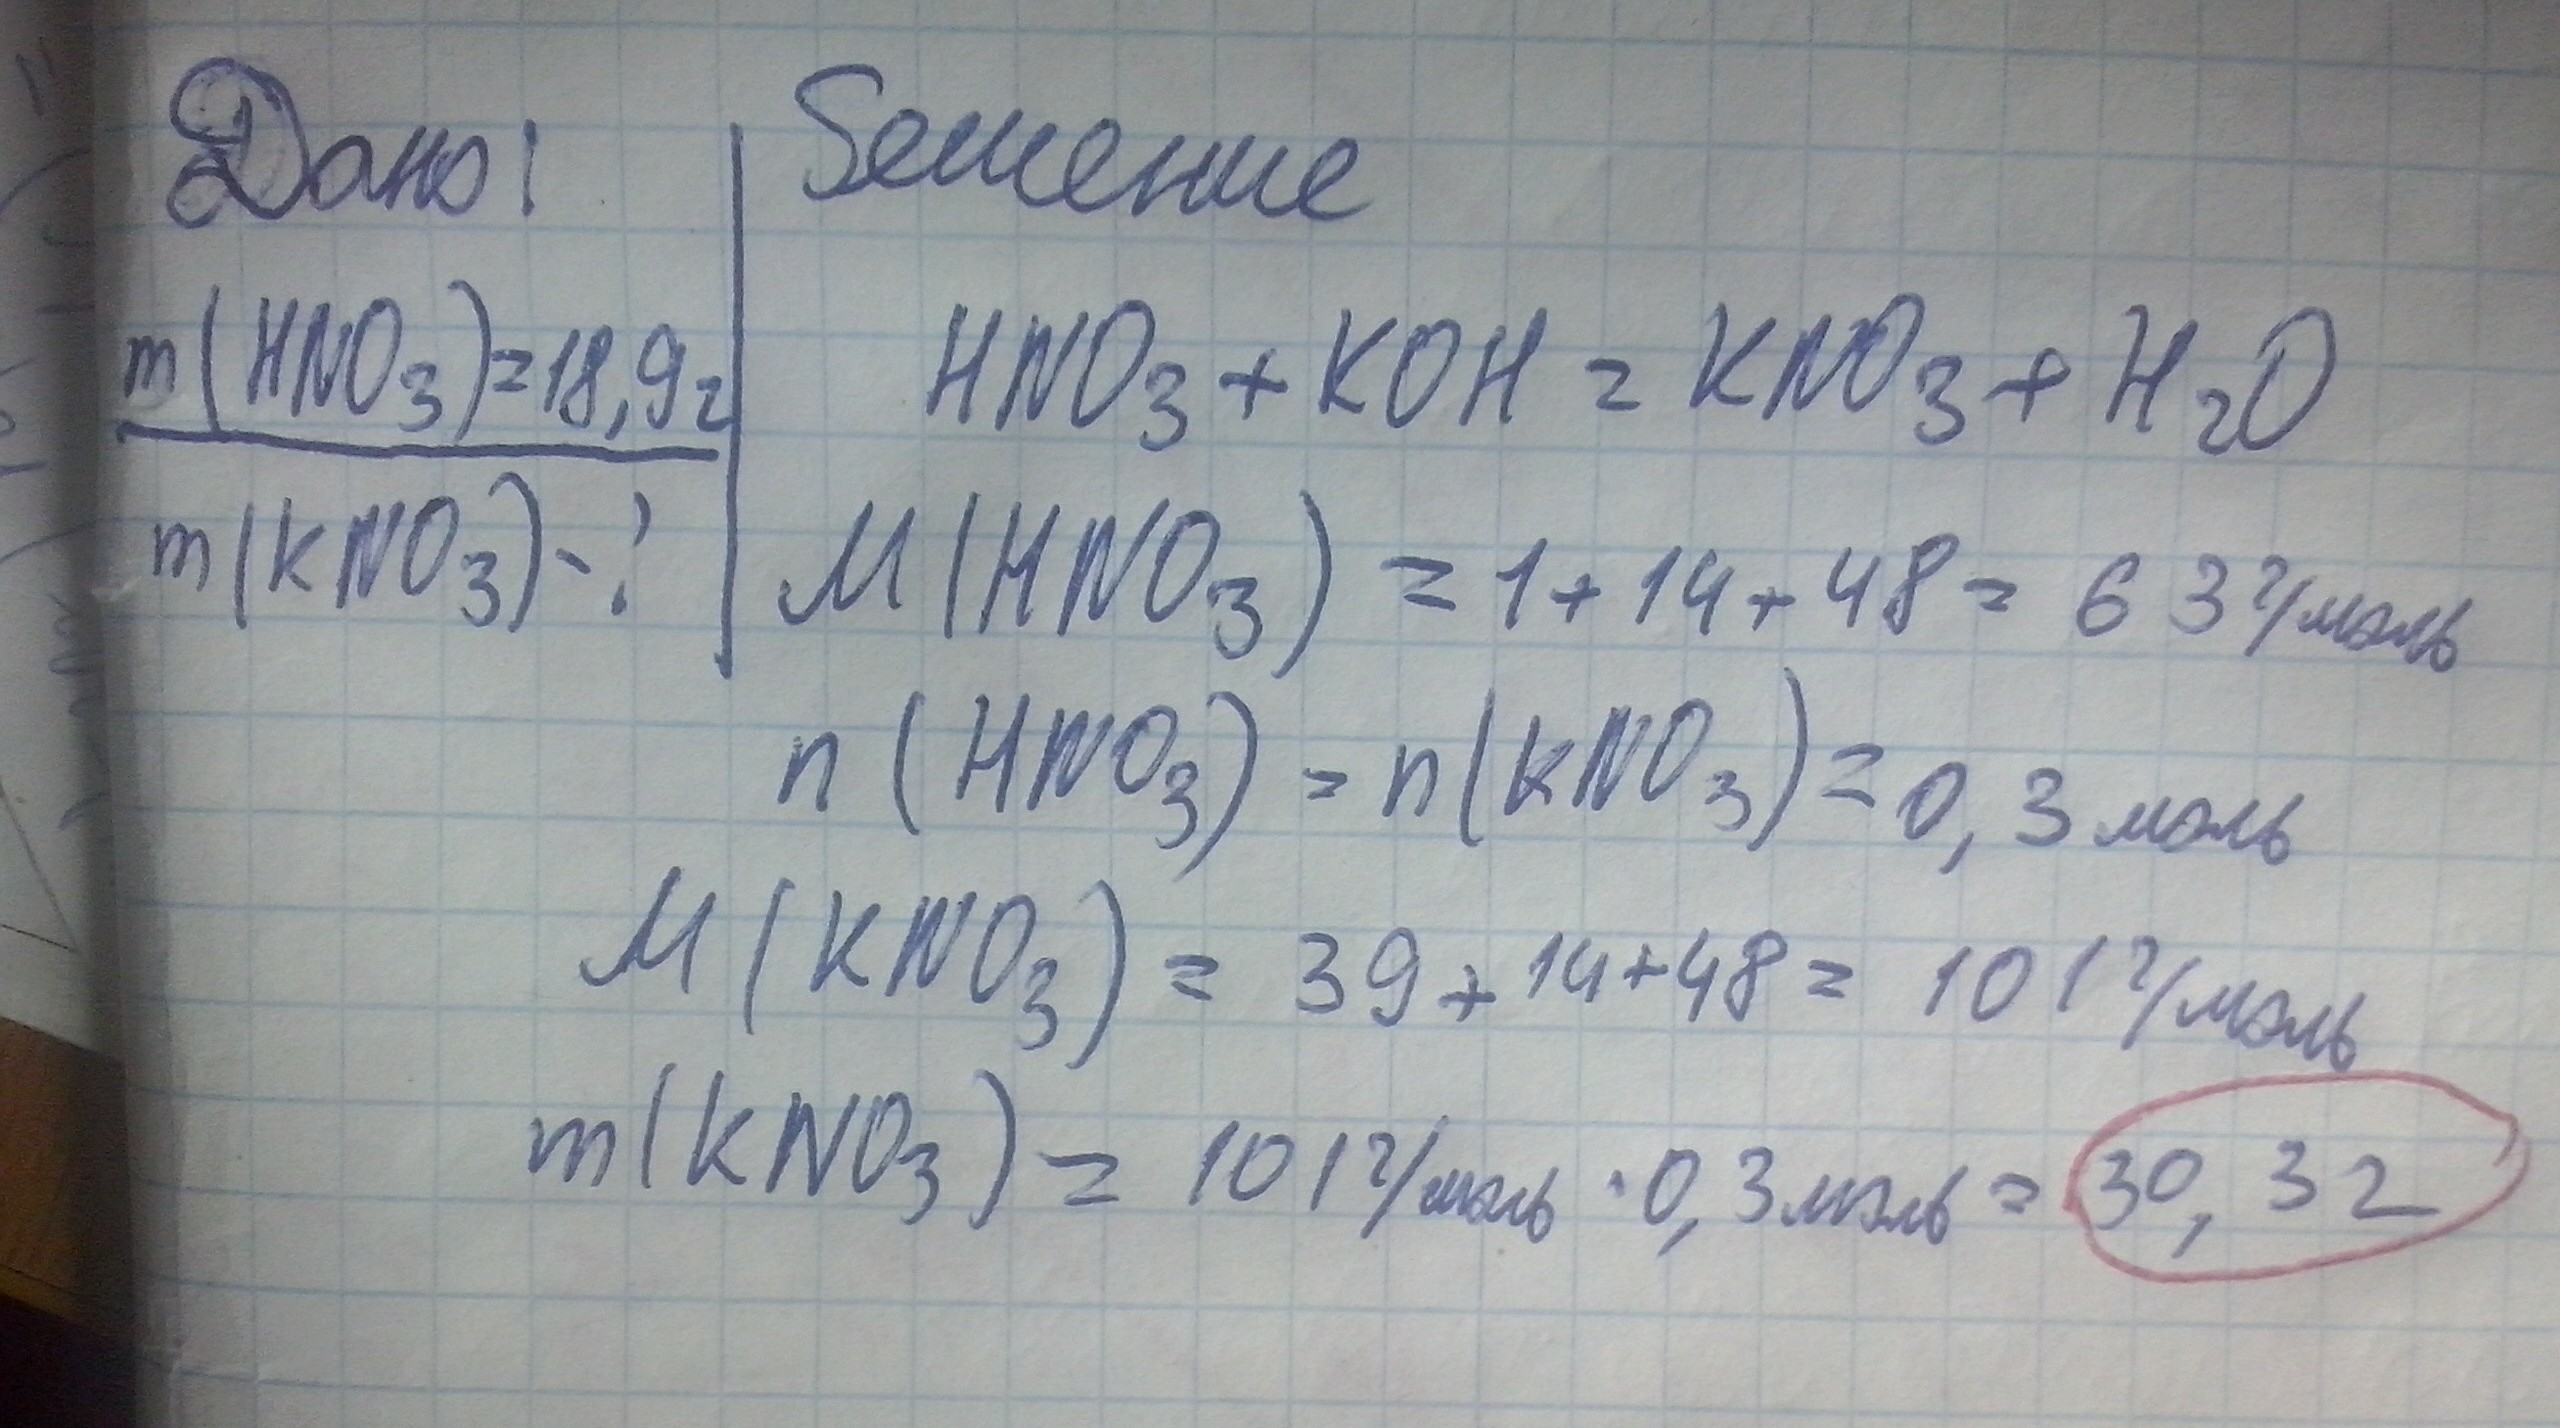 Дано:
m(HNO3)=18,9г
m(KNO3)-?
Решение
HNO3+KOH=KNO3+H2O
M(HNO3)=1+14+48=63г/моль
n(HNO3)=n(KNO3)=0,3моль
M(KNO3)=39+14+48=101г/моль
m(KNO3)=101г/моль·0,3моль=30,3г